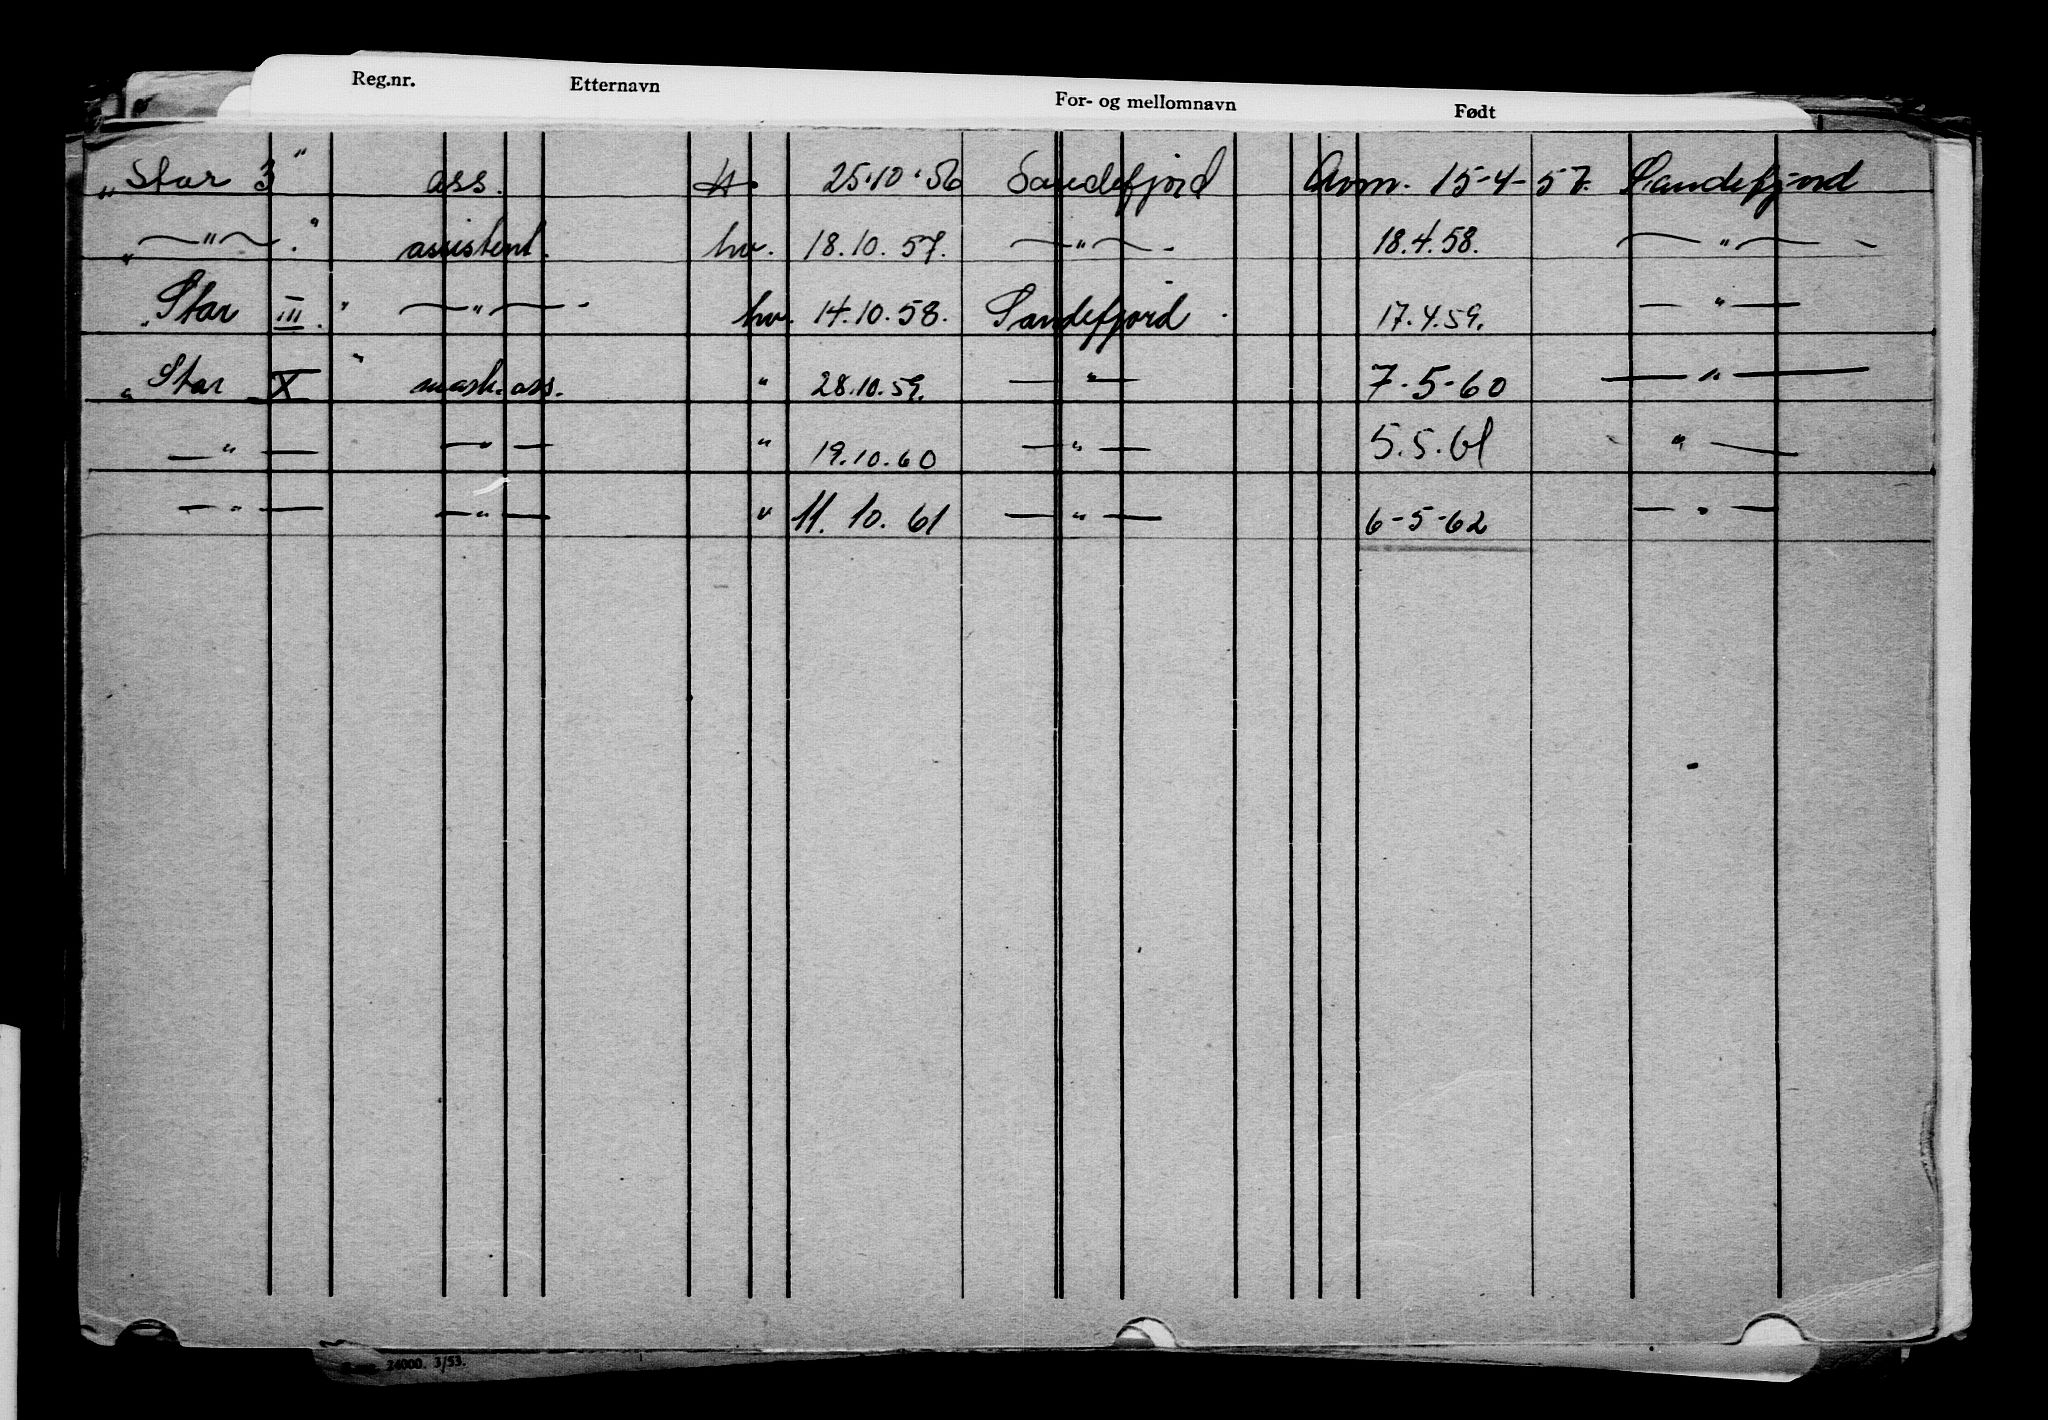 Reg.nr. Etternavn For- og mellomnavn Født
„Star 3" ass. 25.10.56 Sandefjord Avm. 15-4-57. Sandefjord
„—"—." assistent. hv. 18.10.57. —"—. 18.4.58. —"—
„Star III." —"— hv. 14.10.58. Sandefjord. 17.4.59. —"—
„Star X" mask.ass. " 28.10.59. —"— 7-5-60 —"—
—"— —"— " 19.10.60 —"— 5.5.61 "—
—"— —"— " 11.10.61 —"— 6-5-62 —"—
24000. 3/53.